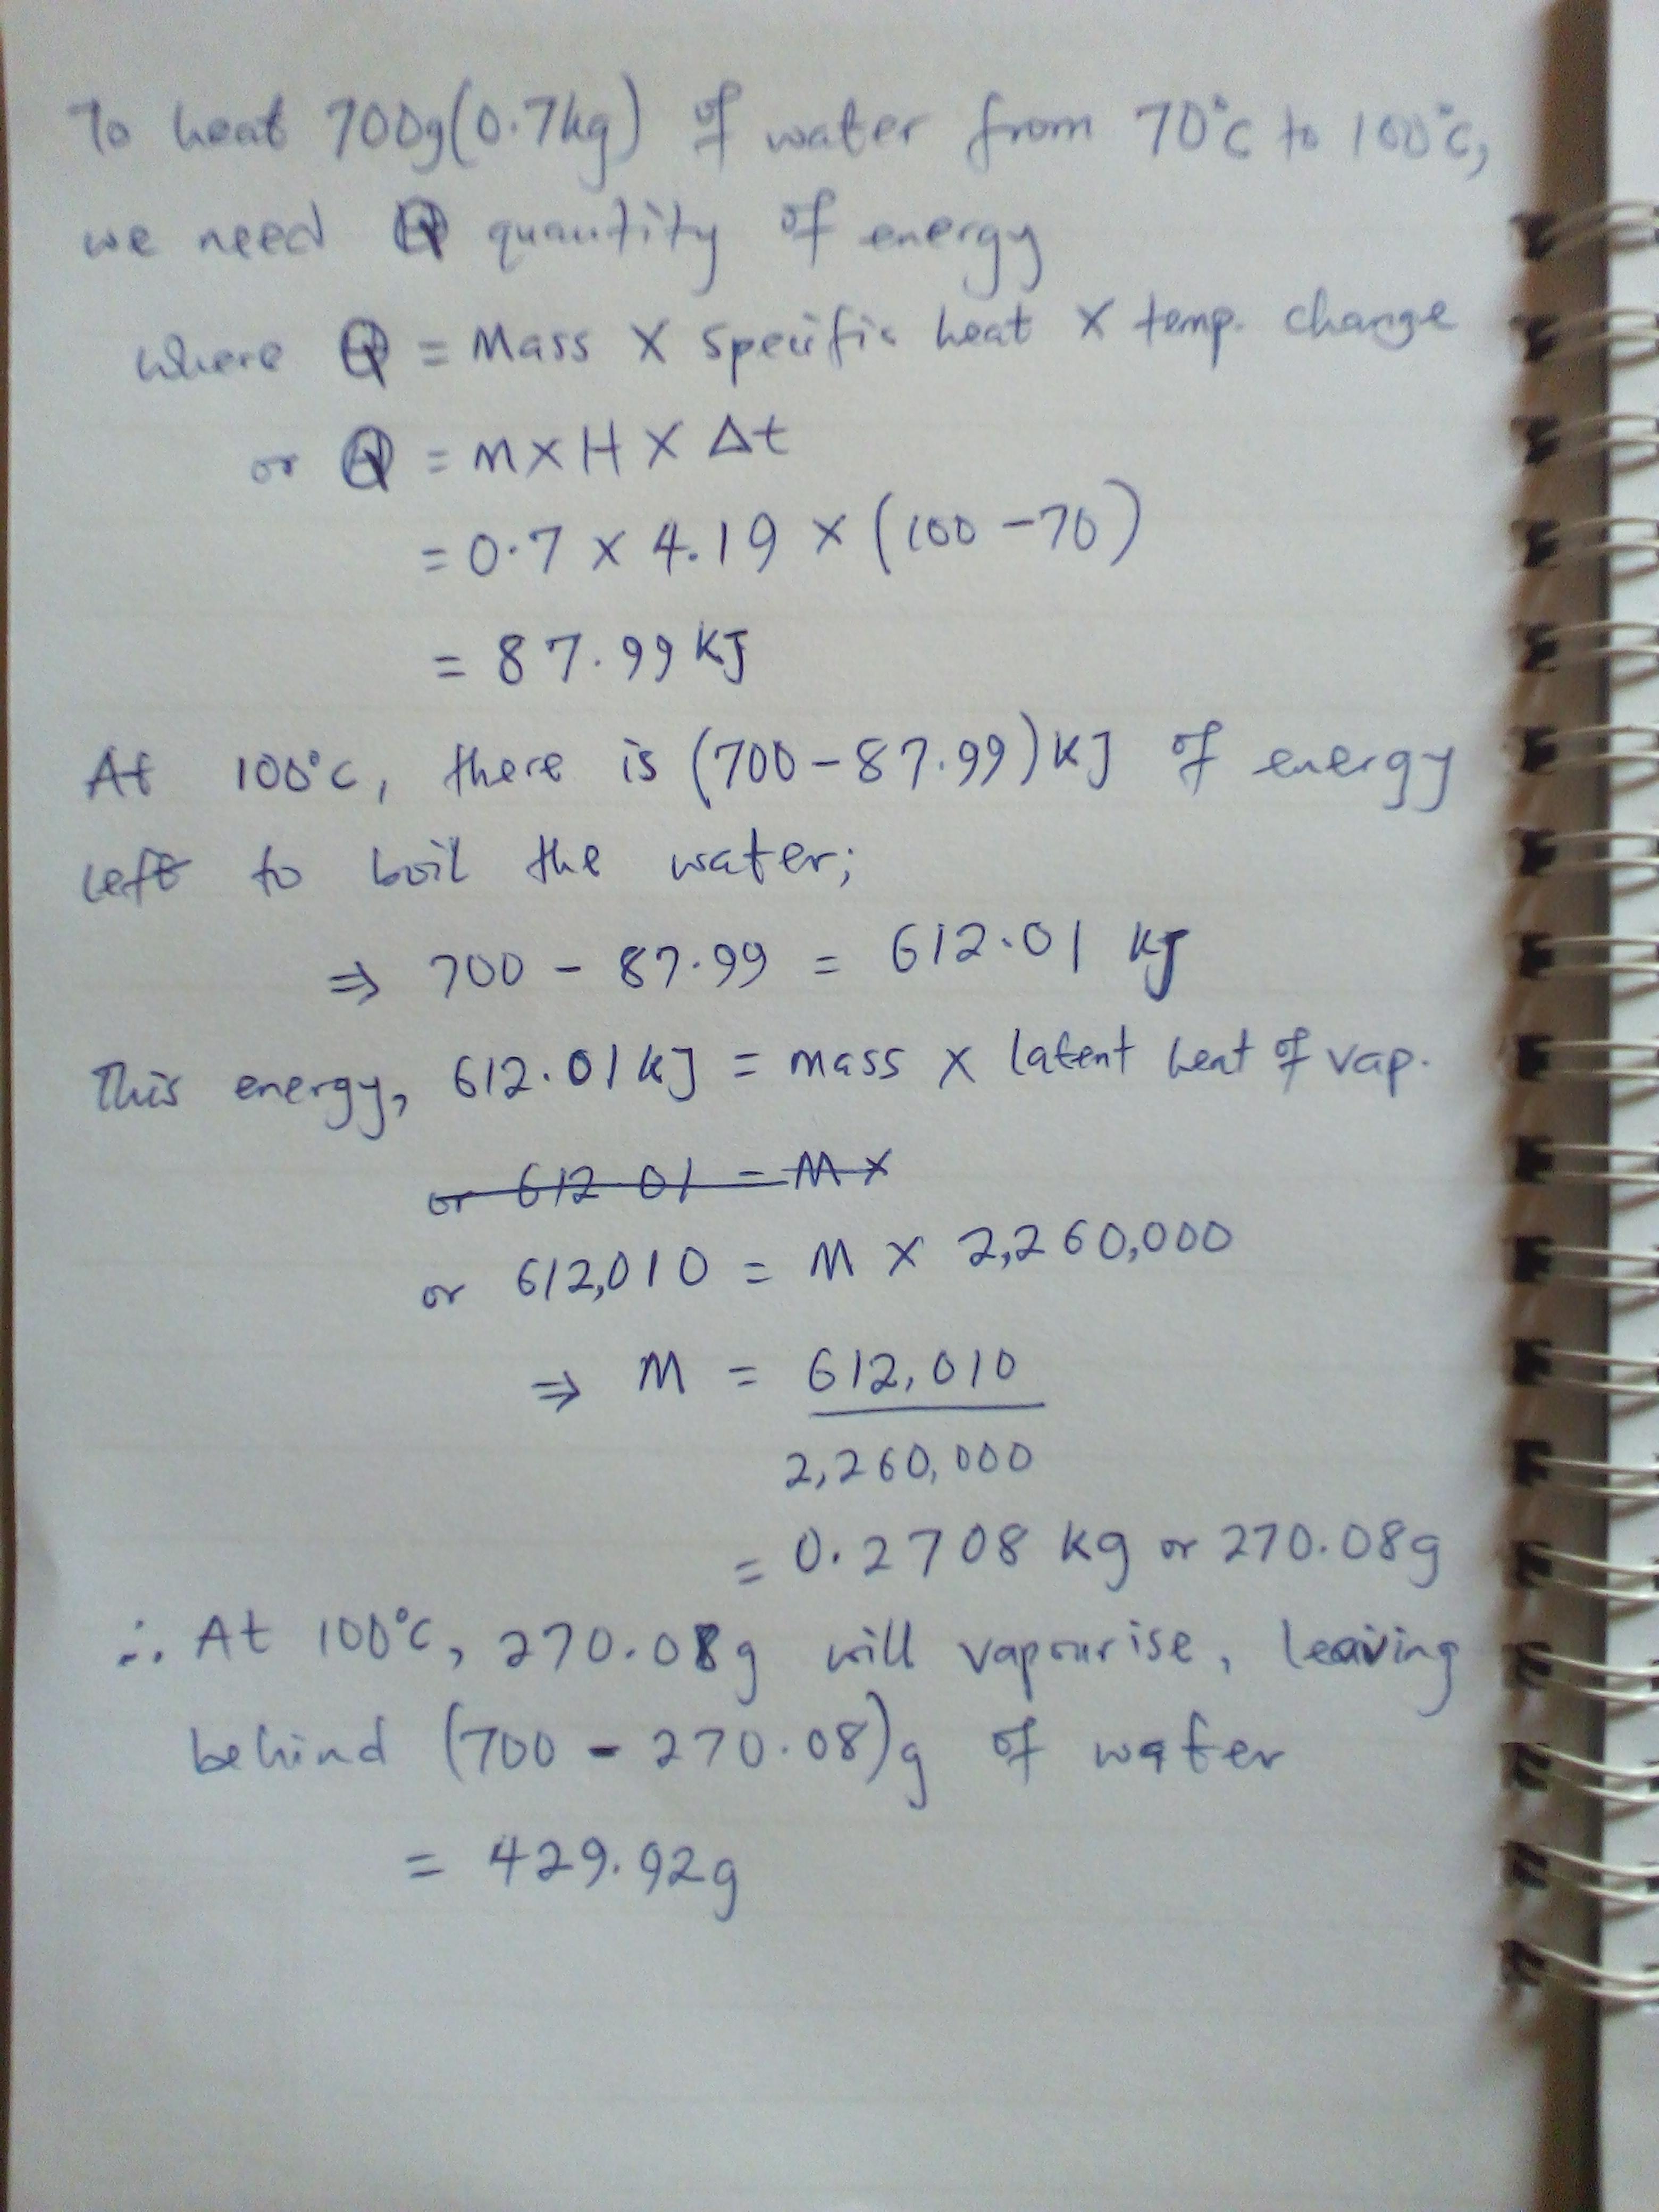 To heat 700g(0.7kg) of water from 70°C to 100°C,
we need Q quantity of energy
where Q = Mass X Specific heat X temp. change
or Q = M X H X Δt
= 0.7 x 4.19 x (100 - 70)
= 87.99 KJ
At 100°C, there is (700 - 87.99) KJ of energy
left to boil the water;
⇒ 700 - 87.99 = 612.01 KJ
This energy, 612.01 kJ = mass x latent heat of vap.
or 612 01 = M x
or 612,010 = M X 2,260,000
⇒ M = 612,010
2,260,000
= 0.2708 kg or 270.08g
∴ At 100°C, 270.08g will vapourise, leaving
behind (700 - 270.08)g of water
= 429.92g